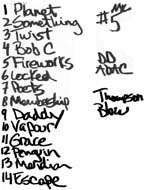 1 Planet
2 Something
3 Twist
4 Bob C
5 Fireworks
6 Locked
7 Poets
8 Membership
9 Daddy
10 Vapour
11 Grace
12 Penguin
13 Meridian
14 Escape
MC
#5
DD
ADAC
Thompson
Blow